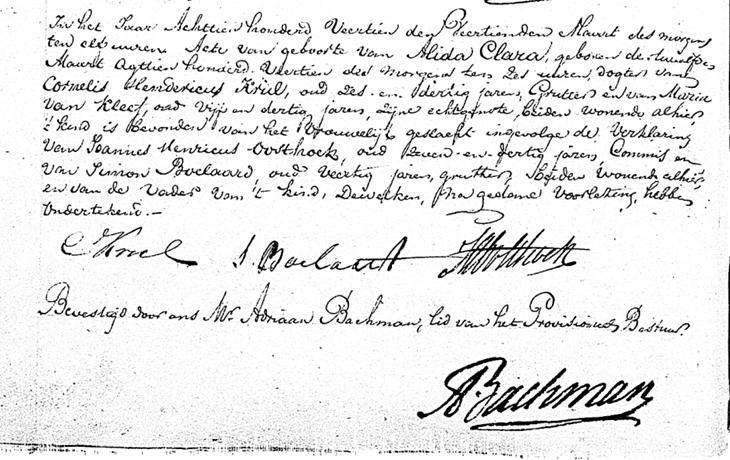 In het Jaar Achttien honderd Veertien den Veertienden Maart des morgens
ten elf uuren Acte van geboorte van Alida Clara, geboren de twaalfde
Maart Agttien honderd Veertien des morgens ten zes uuren, dogter van
Cornelis Hendericus Kriel, oud zes- en dertig jaren, Grutter en van Maria
van Kleef, oud vijf en dertig jaren, zijne echtgenote, beiden wonende alhier
't kind is bevonden van het Vrouwelijk geslacht ingevolge de Verklaring
van Joannes Henricus Oosthoek, oud zeven-en-dertig jaren, Commis en
van Simon Boelaard, oud Veertig jaren, grutter, beiden wonende alhier,
en van de Vader van 't kind, Dewelken, na gedane Voorlezing, hebben
Ondertekend. —
C H Kriel S. Boelaart JH Oosthoek
Bevestigd door ons Mr. Adriaan Bachman, lid van het Provisioneel Bestuur.
A Bachman